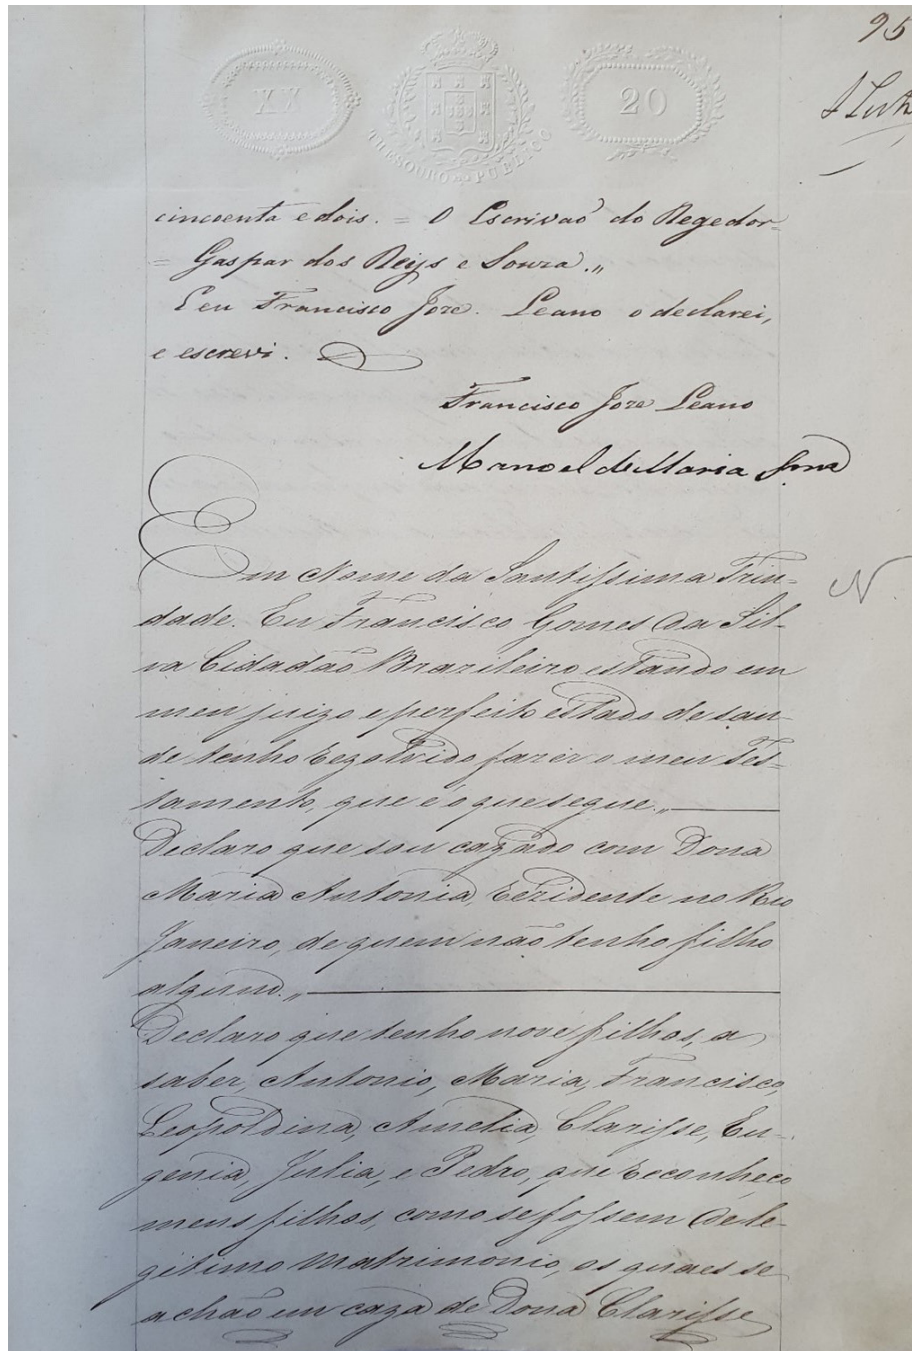 95
XX
20
THESOURO PUBLICO
cincoenta e dois. = O Escrivaõ do Regedor =
= Gaspar dos Reys e Souza.„
E eu Francisco Joze Leano o declarei,
e escrevi.
Francisco Joze Leano
Manoel de Maria
Em Nome da Santissima Trin-
dade. Eu Francisco Gomes da Sil-
va Cidadão Brazileiro estando em
meu juizo e perfeito estado de sau-
de tenho rezolvido fazer o meu Tes=
tamento, que é o que segue.„
Declaro que sou cazado com Dona
Maria Antonia, rezidente no Rio
Janeiro, de quem não tenho filho
algum.„
Declaro que tenho nove filhos, a
saber, Antonio, Maria, Francisco,
Leopoldina, Amelia, Clarisse, Eu-
genia, Julia, e Pedro, que reconheço
meus filhos, como se fossem de le-
gitimo matrimonio, os quaes se
achão em caza de Dona Clarisse